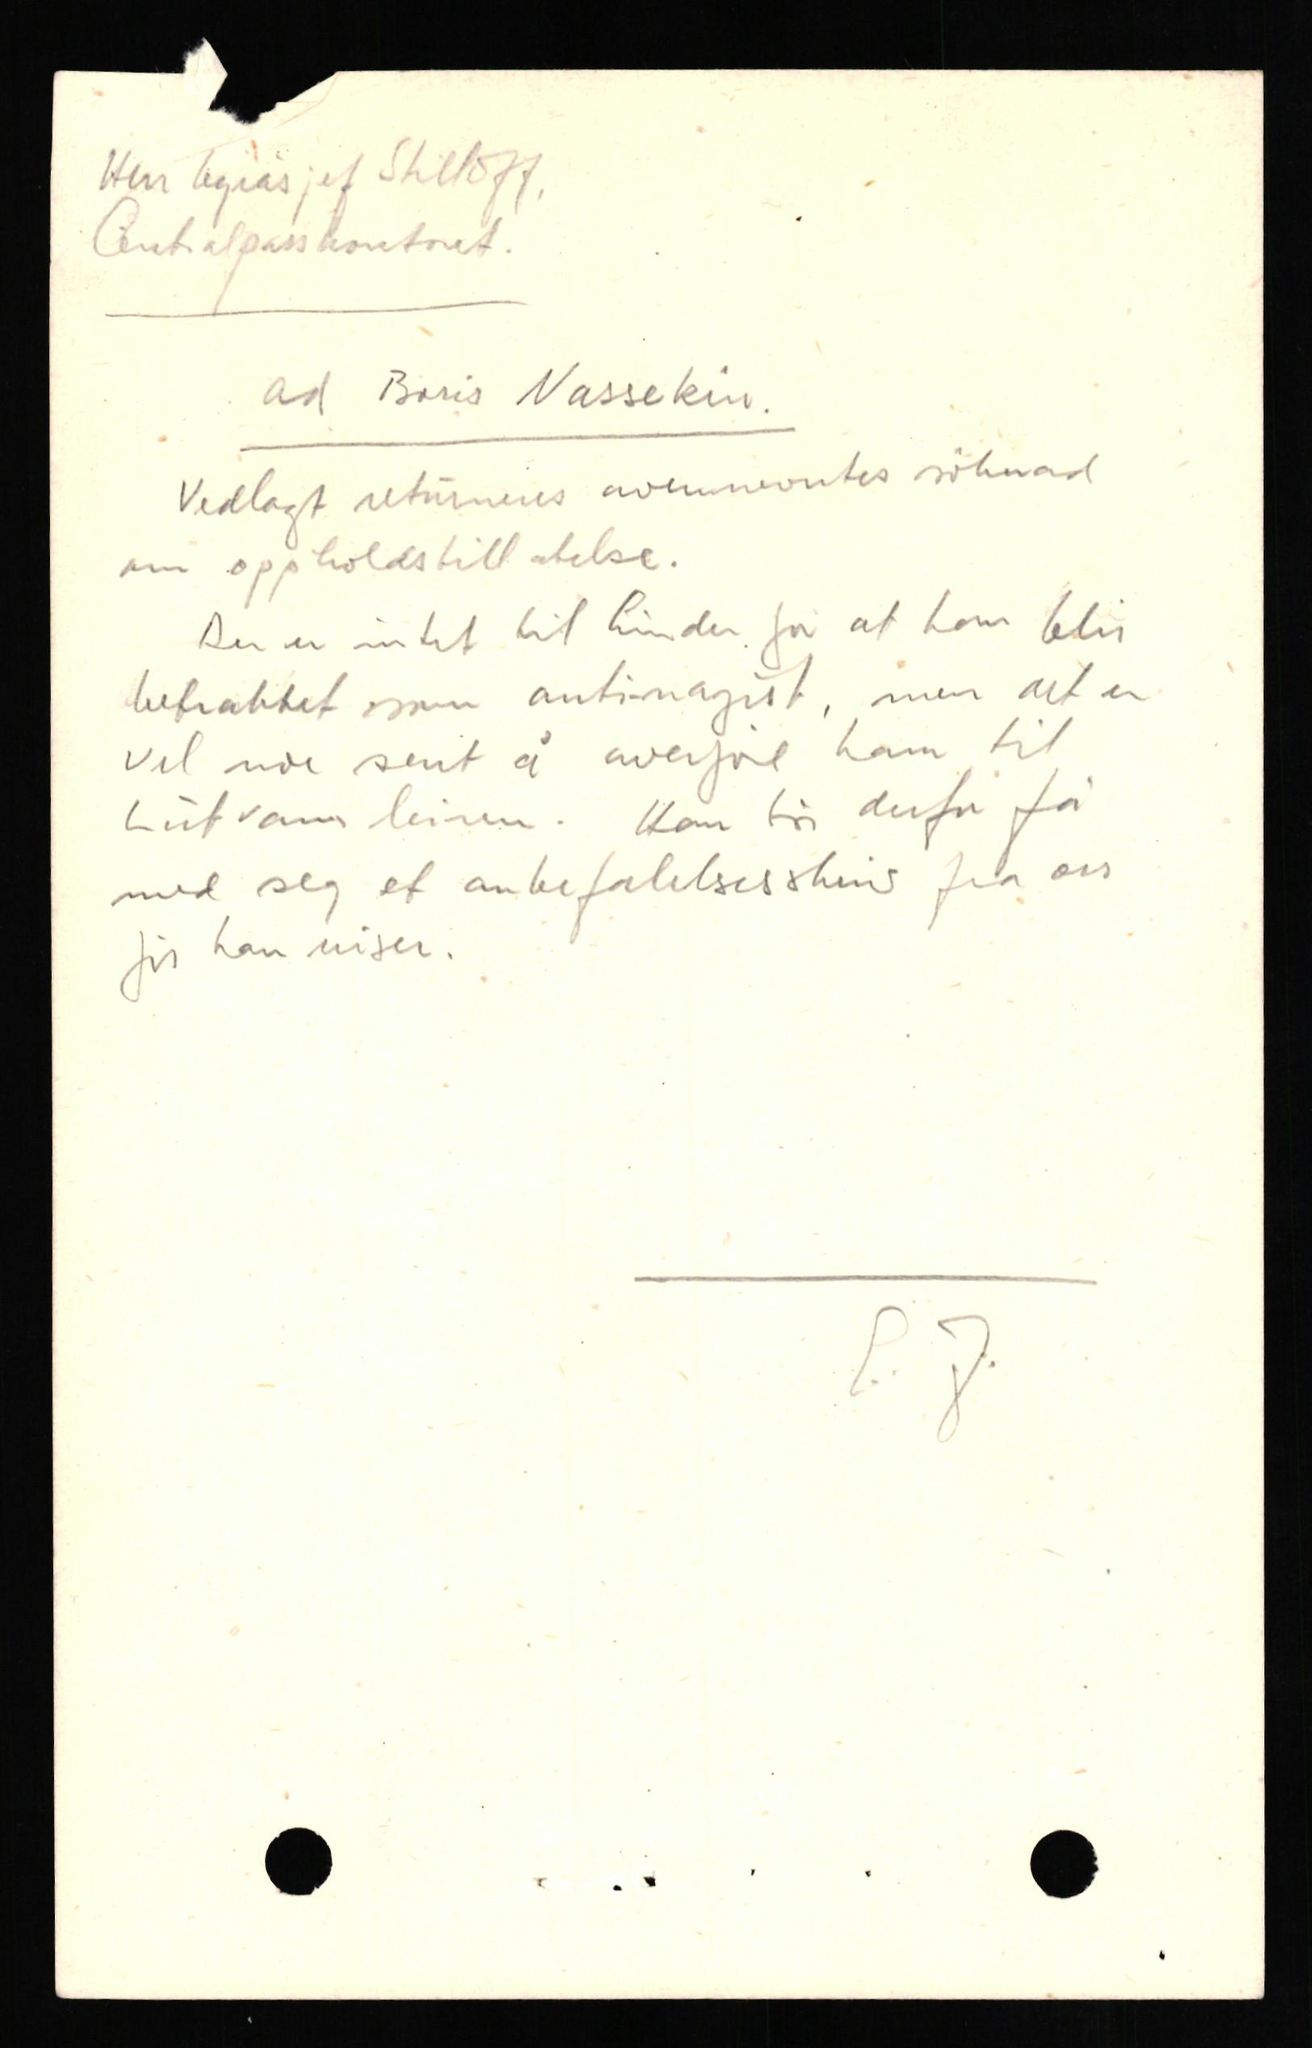 Herr byråsjef Skilloff,
Centralpasskontoret.
ad Boris Nassekin.
Vedlagt returneres ovennevntes söknad
om oppholdstillatelse.
Der er intet til hinder for at han blir
betraktet som antinazist, men det er
vel noe sent å overföre ham til
leiren. Han bör derfor få
med seg et anbefalelsesskriv fra oss
för han reiser.
E. J.